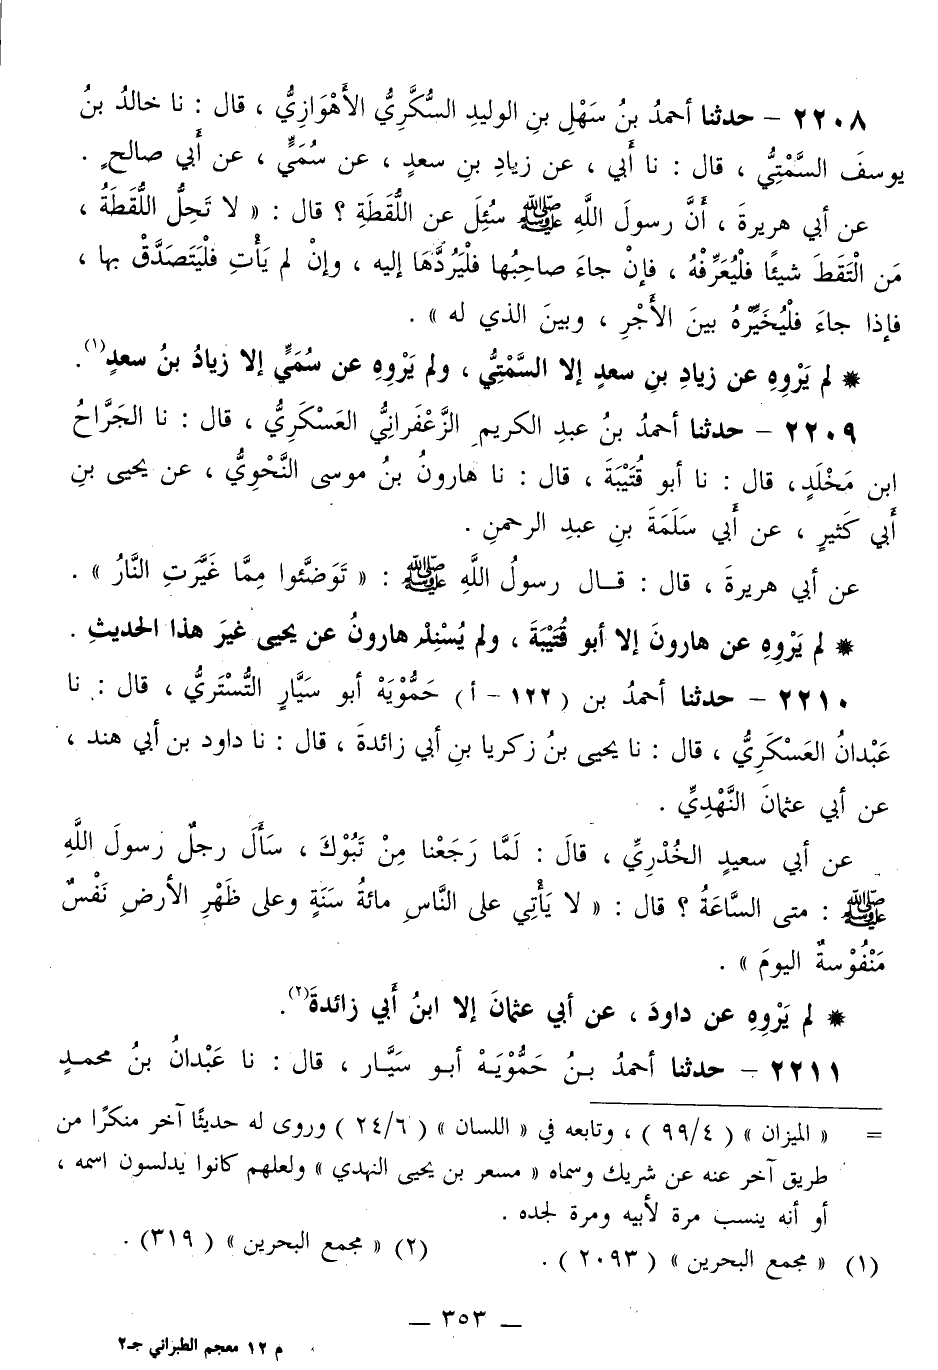 ٢٢٠٨ – حدثنا أحمدُ بنُ سَهْلِ بنِ الوليدِ السُّكَّرِيُّ الأَهْوَازِيُّ ، قال : نا خالدُ بنُ
يوسفَ السَّمْتِيُّ ، قال : نا أَبي ، عن زيادِ بنِ سعدٍ ، عن سُمَيٍّ ، عن أَبي صالحٍ .
عن أبي هريرةَ ، أَنَّ رسولَ اللَّهِ ﷺ سُئِلَ عن اللُّقَطَةِ ؟ قال : « لا تَحِلُّ اللُّقَطَةُ ،
مَن الْتَقَطَ شيئًا فلْيُعَرِّفْهُ ، فإنْ جاءَ صاحِبُها فلْيَرُدَّهَا إليه ، وإنْ لم يَأْتِ فلْيَتَصَدَّقْ بها ،
فإذا جاءَ فلْيُخَيِّرْهُ بينَ الأَجْرِ ، وبينَ الذي له » .
* لم يَرْوِهِ عن زيادِ بنِ سعدٍ إلا السَّمْتِيُّ ، ولم يَرْوِهِ عن سُمَيٍّ إلا زيادُ بنُ سعدٍ(١).
٢٢٠٩ – حدثنا أحمدُ بنُ عبدِ الكريمِ الزَّعْفَرانِيُّ العَسْكَرِيُّ ، قال : نا الجَرَّاحُ
ابن مَخْلَدٍ، قال : نا أبو قُتَيْبَةَ ، قال : نا هارونُ بنُ موسى النَّحْوِيُّ ، عن يحيى بنِ
أَبي كَثيرٍ ، عن أَبي سَلَمَةَ بنِ عبدِ الرحمنِ .
عن أبي هريرةَ ، قال : قـال رسولُ اللَّهِ ﷺ : « تَوَضَّئوا مِمَّا غَيَّرَتِ النَّارُ » .
* لم يَرْوِهِ عن هارونَ إلا أبو قُتَيْبَةَ ، ولم يُسْنِدْ هارونُ عن يحيى غيرَ هذا الحديثِ .
٢٢١٠ – حدثنا أحمدُ بن ( ١٢٢ – أ ) حَمُّوْيَهْ أبو سَيَّارٍ التُّسْتَرِيُّ ، قال : نا
عَبْدانُ العَسْكَرِيُّ ، قال : نا يحيى بنُ زكريا بنِ أبي زائدةَ ، قال : نا داود بن أبي هند ،
عن أبي عثمانَ النَّهْدِيِّ .
عن أبي سعيدٍ الخُدْرِيِّ ، قالَ : لَمَّا رَجَعْنا مِنْ تَبُوْكَ ، سَأَلَ رجلٌ رسولَ اللَّهِ
ﷺ : متى السَّاعَةُ ؟ قال : « لا يَأْتِي على النَّاسِ مائةُ سَنَةٍ وعلى ظَهْرِ الأرضِ نَفْسٌ
مَنْفُوْسةٌ اليومَ » .
* لم يَرْوِهِ عن داودَ ، عن أبي عثمانَ إلا ابنُ أَبي زائدةَ(٢).
٢٢١١ – حدثنا أحمدُ بـنُ حَمُّوْيَـهْ أبـو سَيَّـار ، قال : نا عَبْدانُ بنُ محمـدٍ
= « الميزان » ( ٩٩/٤ ) ، وتابعه في « اللسان » ( ٢٤/٦ ) وروى له حديثًا آخر منكرًا من
طريق آخر عنه عن شريك وسماه « مسعر بن يحيى النهدي » ولعلهم كانوا يدلسون اسمه ،
أو أنه ينسب مرة لأبيه ومرة لجده .
(١) « مجمع البحرين » ( ٢٠٩٣ ) . (٢) « مجمع البحرين » ( ٣١٩) .
– ٣٥٣ –
م ١٢ معجم الطبراني جـ٢